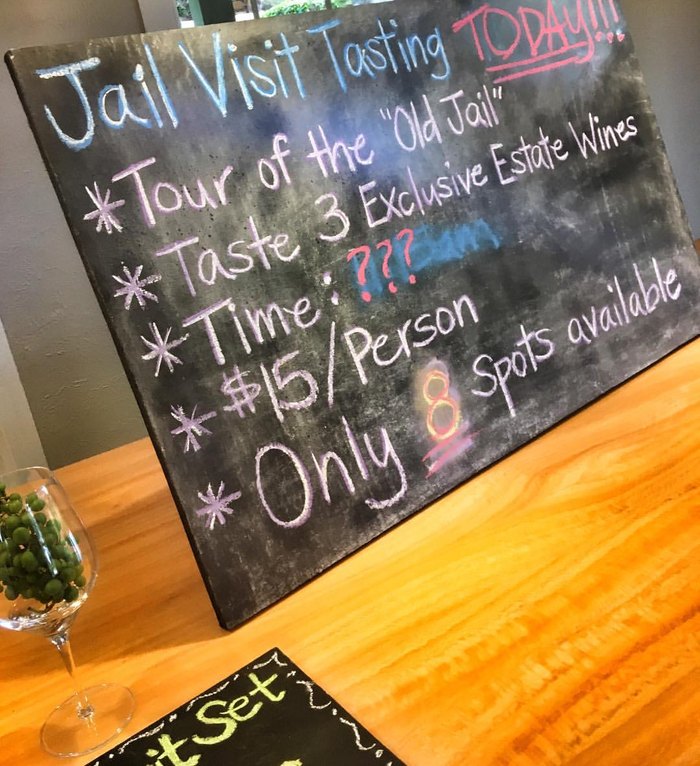 Jail Visit Tasting TODAY!!!
* Tour of the "Old Jail"
* Taste 3 Exclusive Estate Wines
* Time: ???
* $15/Person
* Only 8 Spots available
it Set